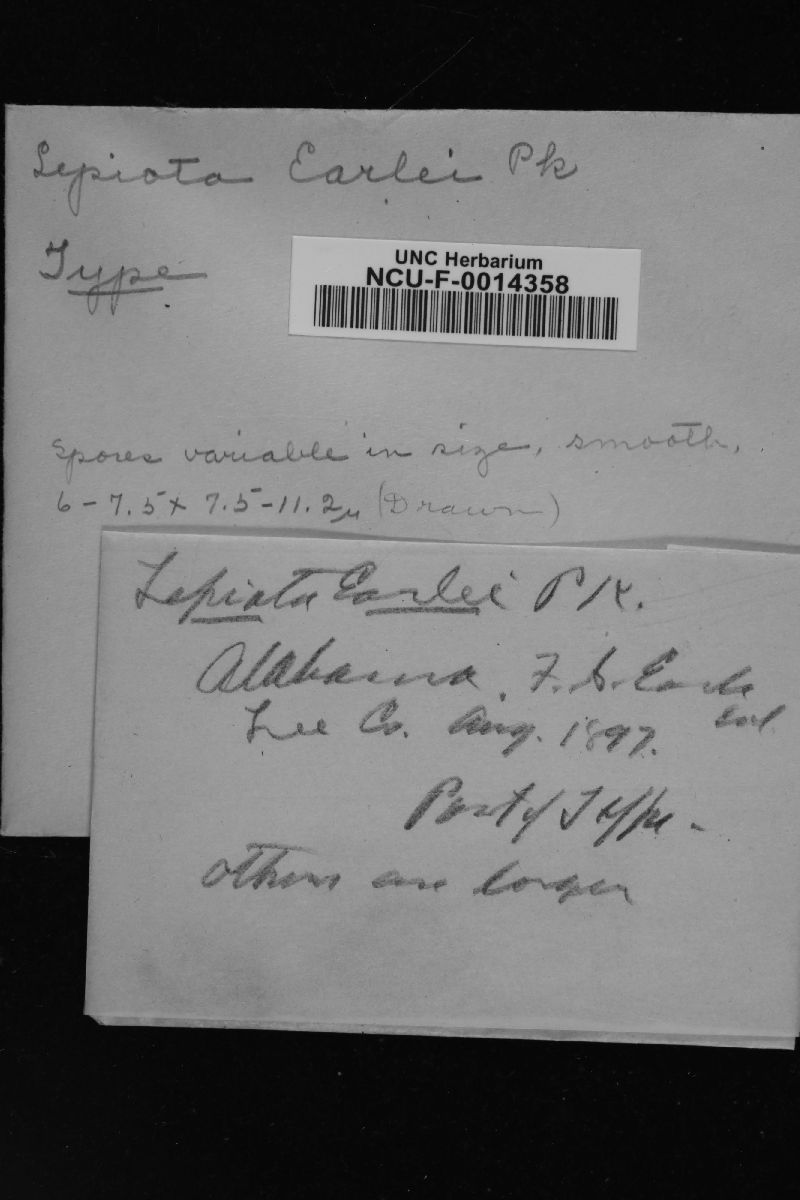 Lepiota Earlei Pk
Type
UNC Herbarium
NCU-F-0014358
Spores variable in size, smooth,
6-7.5 x 7.5-11.2µ (Drawn)
Lepiota Earlei Pk.
Alabama, F. S. Earle
Lee Co. Aug. 1897. Col.
Part of Type -
others are larger